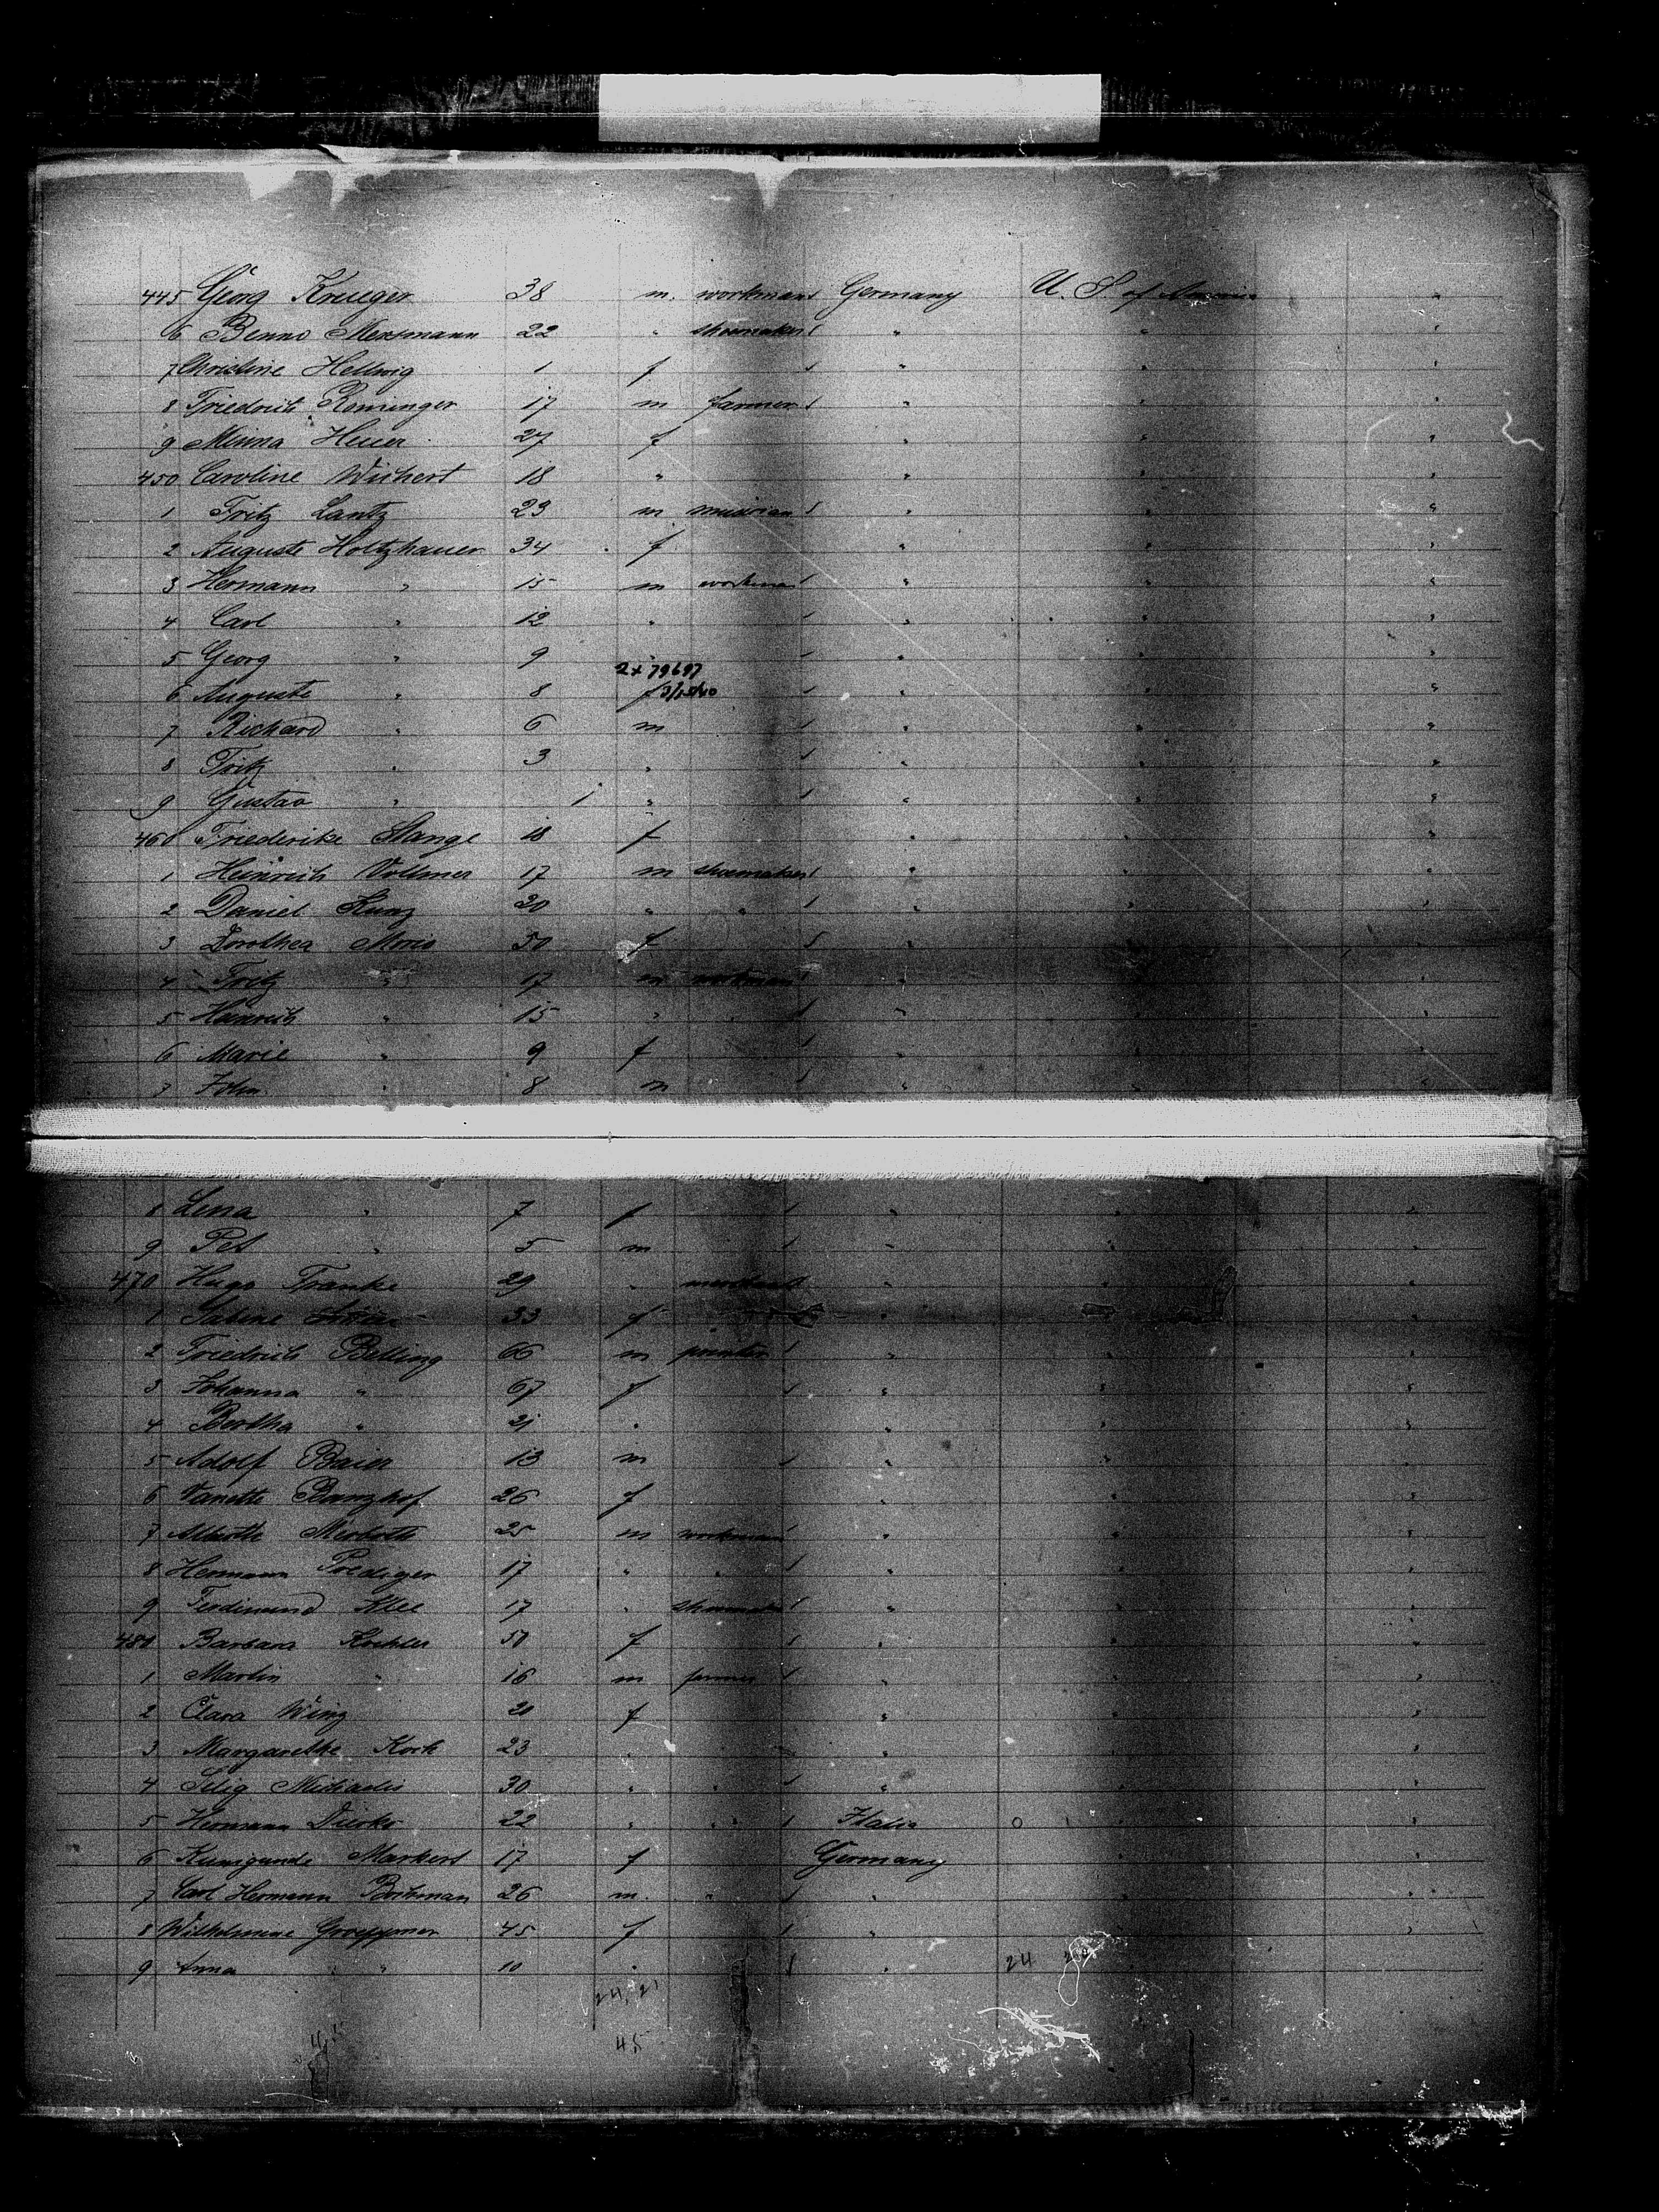 445 Georg Krueger 38 m. workman Germany U. S. of America "
6 Benno Mersmann 22 " shoemaker " " "
7 Christine Hellwig 1 f " " "
8 Friedrich Roninger 17 m farmer " " "
9 Minna Heuer 27 f " " "
450 Caroline Wichert 18 " " " "
1 Fritz Lantz 23 m musician " " "
2 Auguste Holtzhauer 34 f " " "
3 Hermann " 15 m workman " " "
4 Carl " 12 " " " "
5 Georg " 9 " " " "
2x 79697
6 Auguste " 8 f 3/15/40 " " "
7 Richard " 6 m " " "
8 Fritz " 3 " " " "
9 Gustav " 1 " " " "
460 Friederike Stange 18 f " "
1 Heinrich Vollmer 17 m shoemaker " " "
2 Daniel Kunz 20 " " " " "
3 Dorothea 50 f " "
4 Fritz " 17 m workman " "
5 Heinrich " 15 " " " "
6 Marie " 9 f " " "
7 John " 8 m " " "
8 Lena " 7 f " " "
9 Pet " 5 m " " "
470 Hugo Franke 29 " " " "
1 Sabine 33 f " "
2 Friedrich Belling 66 m " " "
3 Johanna " 67 f " " "
4 Bertha " 21 " " " "
5 Adolf Baier 13 m " " "
6 Vanette Banzhof 26 f " " "
7 25 m workman " " "
8 Hermann Prediger 17 " " " " "
9 Ferdinand Klee 17 " shoemaker " " "
480 Barbara Koehler 50 f " " "
1 Martin " 16 m farmer " " "
2 Clara Wing 20 f " " "
3 Margarethe Koch 23 " " " "
4 Selig Michaelis 30 " " " " "
5 Hermann Dierks 22 " " Italia "
6 Kunigunde Markert 17 f Germany
7 Carl Hermann Bohman 26 m. " " " "
8 Wilhelmine 45 f " "
9 Anna " 10 " " 24
24, 21
45